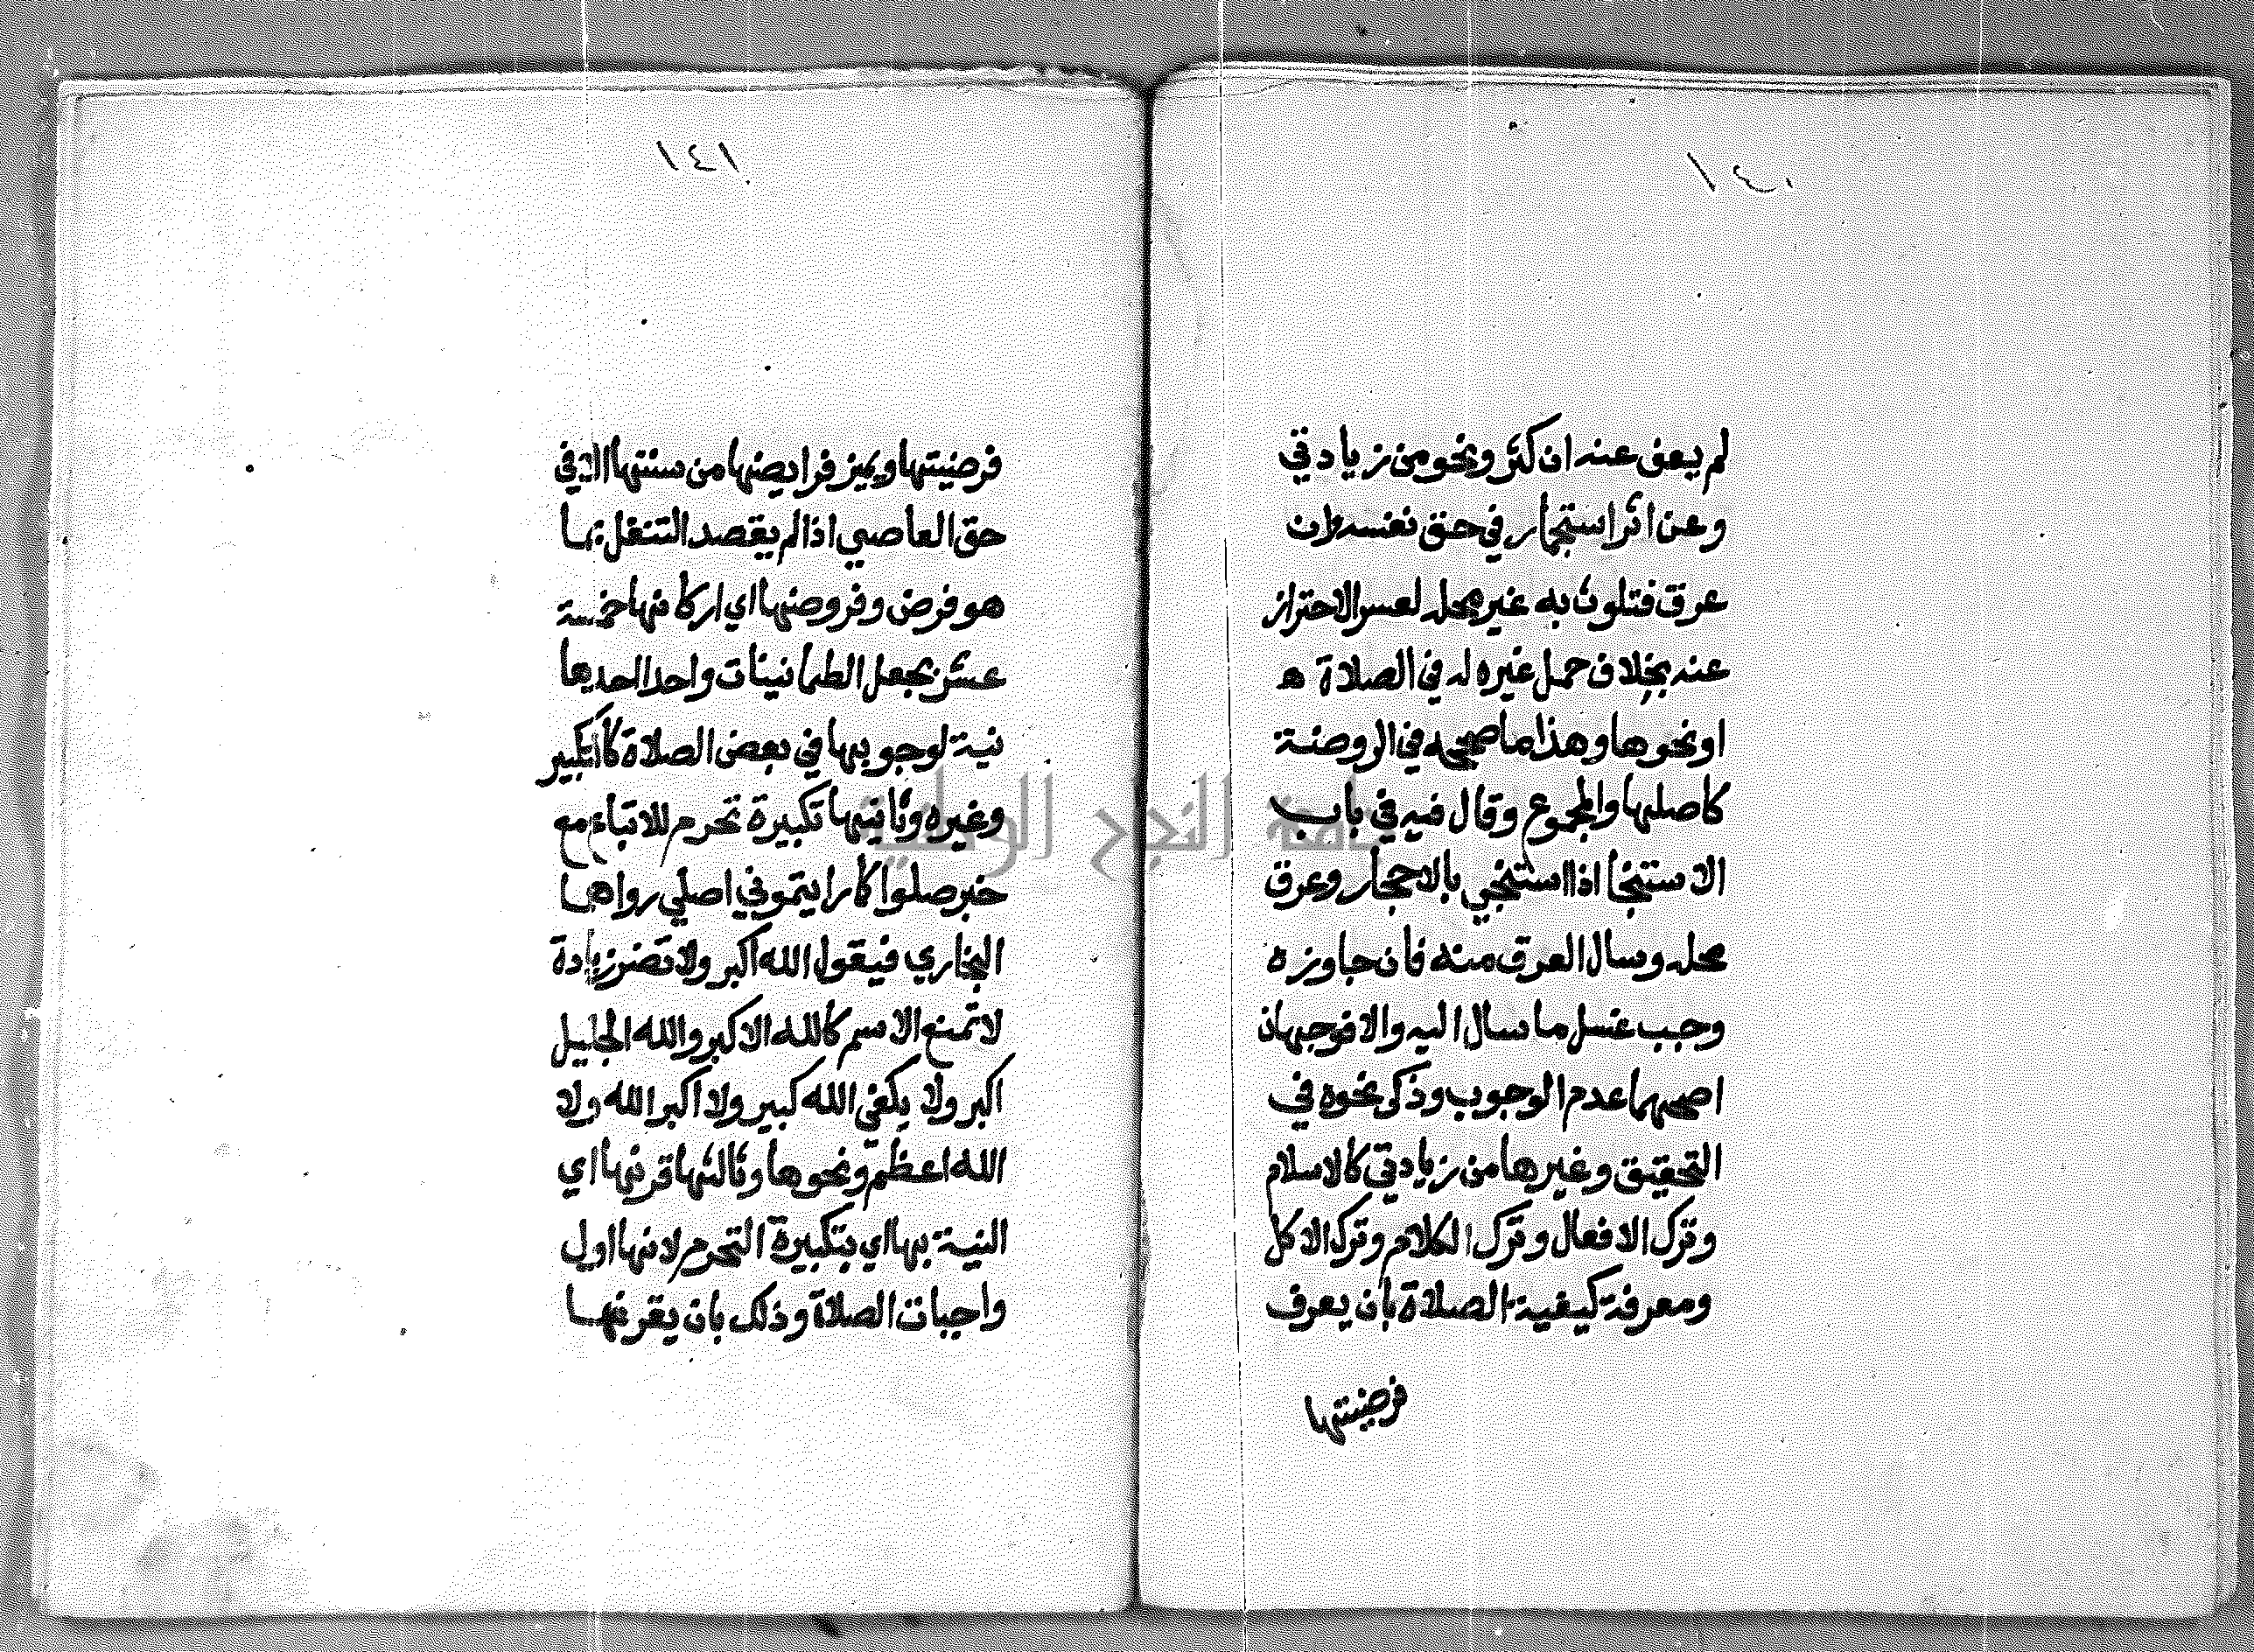 ١٤٠
لم يعف عنه ان كثر ونحو من زيادتي
وعن اثر استجمار في حق نفسه وان
عرق فتلوث به غير محله لعسر الاحتراز
عنه بخلاف حمل غيره له في الصلاة ه
او نحوها وهذا ما صححه في الروضة
كاصلها والمجموع وقال فيه في باب
الاستنجا اذا استنجي بالاحجار وعرق
محله وسال العرق منه فان جاوزه
وجب غسل ما سال اليه والا فوجهان
اصحهما عدم الوجوب وذكر نحوه في
التحقيق وغيرها من زيادتي كالاسلام
وترك الافعال وترك الكلام وترك الاكل
ومعرفة كيفية الصلاة بان يعرف
فرضيتها
١٤١
فرضيتها ويميز فرايضها من سننها الا في
حق العاصي اذا لم يقصد التنفل بما
هو فرض وفروضها اي اركانها خمسة
عشر بجعل الطمانينات واحدا احديها
نية لوجوبها في بعض الصلاة كالتكبير
وغيره وثانيها تكبيرة تحرم للاتباع مع
خبر صلوا كما رايتموني اصلي رواهما
البخاري فيقول الله اكبر ولا تضر زيادة
لا تمنع الاسم كالله الاكبر والله الجليل
اكبر ولا يكفي الله كبير ولا اكبر الله ولا
الله اعظم ونحوها وثالثها قرنها اي
النية بها اي بتكبيرة التحرم لانها اول
واجبات الصلاة وذلك بان يقرنها
جامعة النجاح الوطنية